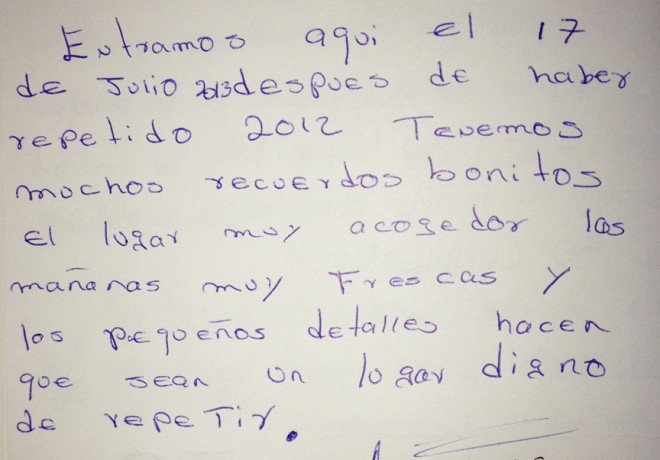 Entramos aqui el 17
de Julio 2013 despues de haber
repetido 2012 Tenemos
muchos recuerdos bonitos
El lugar muy acogedor las
mañanas muy Frescas y
los pequeños detalles hacen
que sean un lugar digno
de repeTir.